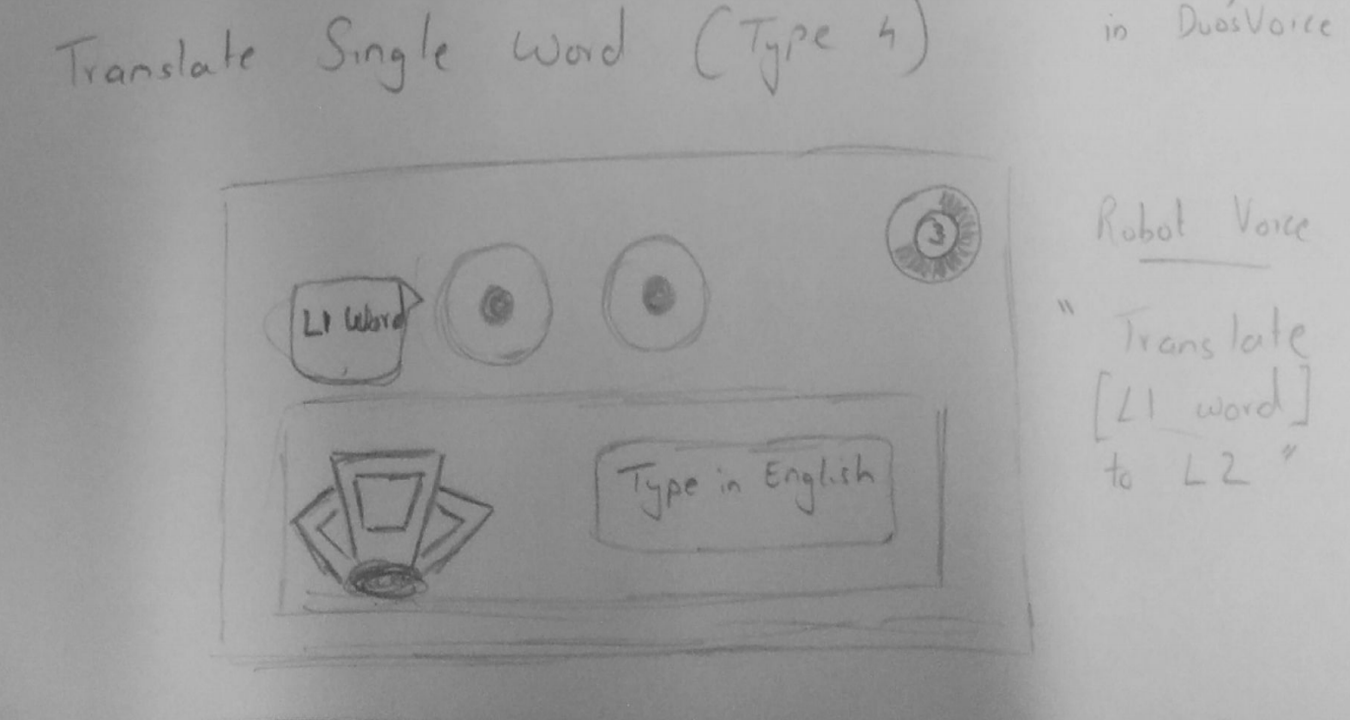 Translate Single Word (Type 4)
in Duo'sVoice
3
L1 Word
Type in English
Robot Voice
" Translate
[L1 word]
to L2 "